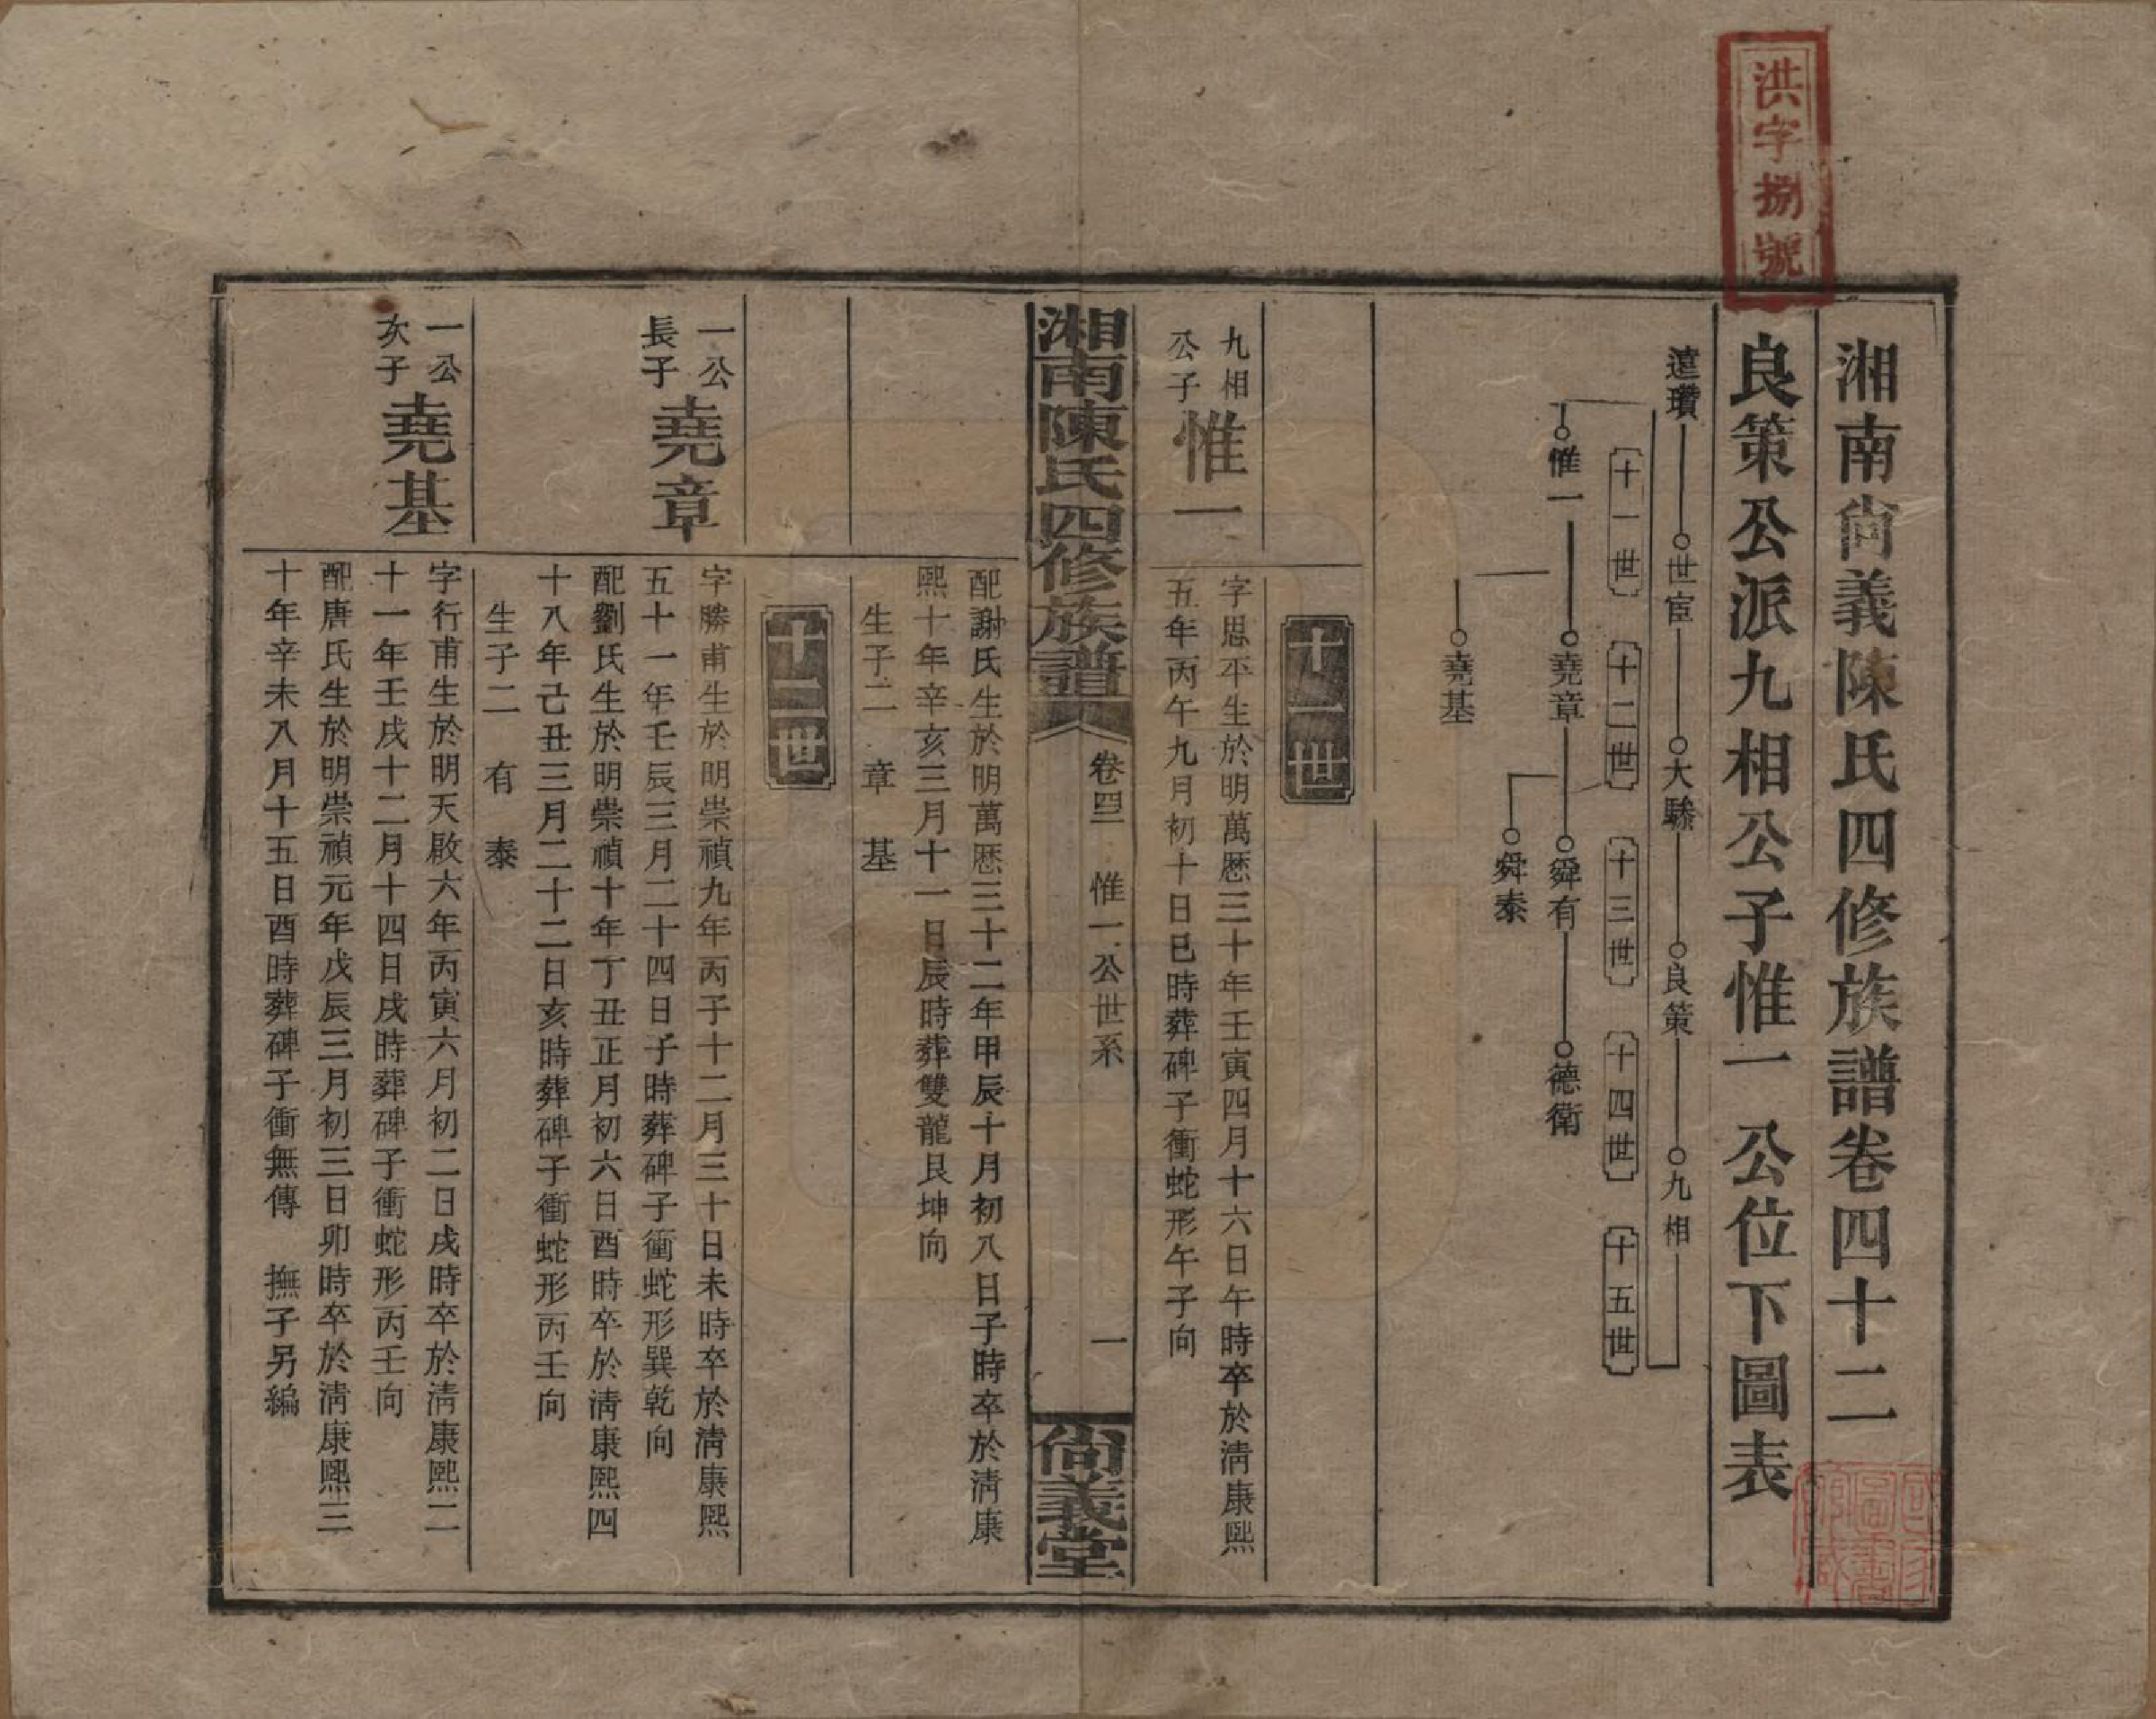 洪字捌號
湘南尙義陳氏四修族譜卷四十二
良策公派九相公子惟一公位下圖表
遠瓚 世宦 大驂 良策 九相
十一世 十二世 十三世 十四世 十五世
惟一 堯章 舜有 德衛
舜泰
堯基
十一世
九相公子 惟一
字思平生於明萬歷三十年壬寅四月十六日午時卒於淸康熙
五年丙午九月初十日巳時葬碑子衝蛇形午子向
湘南陳氏四修族譜 卷四二 惟一公世系 一 尙義堂
配謝氏生於明萬歷三十二年甲辰十月初八日子時卒於淸康
熙十年辛亥三月十一日辰時葬雙龍艮坤向
生子二 章 基
十二世
一公長子 堯章
字勝甫生於明崇禎九年丙子十二月三十日未時卒於淸康熙
五十一年壬辰三月二十四日子時葬碑子衝蛇形巽乾向
配劉氏生於明崇禎十年丁丑正月初六日酉時卒於淸康熙四
十八年己丑三月二十二日亥時葬碑子衝蛇形丙壬向
生子二 有 泰
一公次子 堯基
字行甫生於明天啟六年丙寅六月初二日戌時卒於淸康熙二
十一年壬戌十二月十四日戌時葬碑子衝蛇形丙壬向
配唐氏生於明崇禎元年戊辰三月初三日卯時卒於淸康熙三
十年辛未八月十五日酉時葬碑子衝無傳 撫子另編